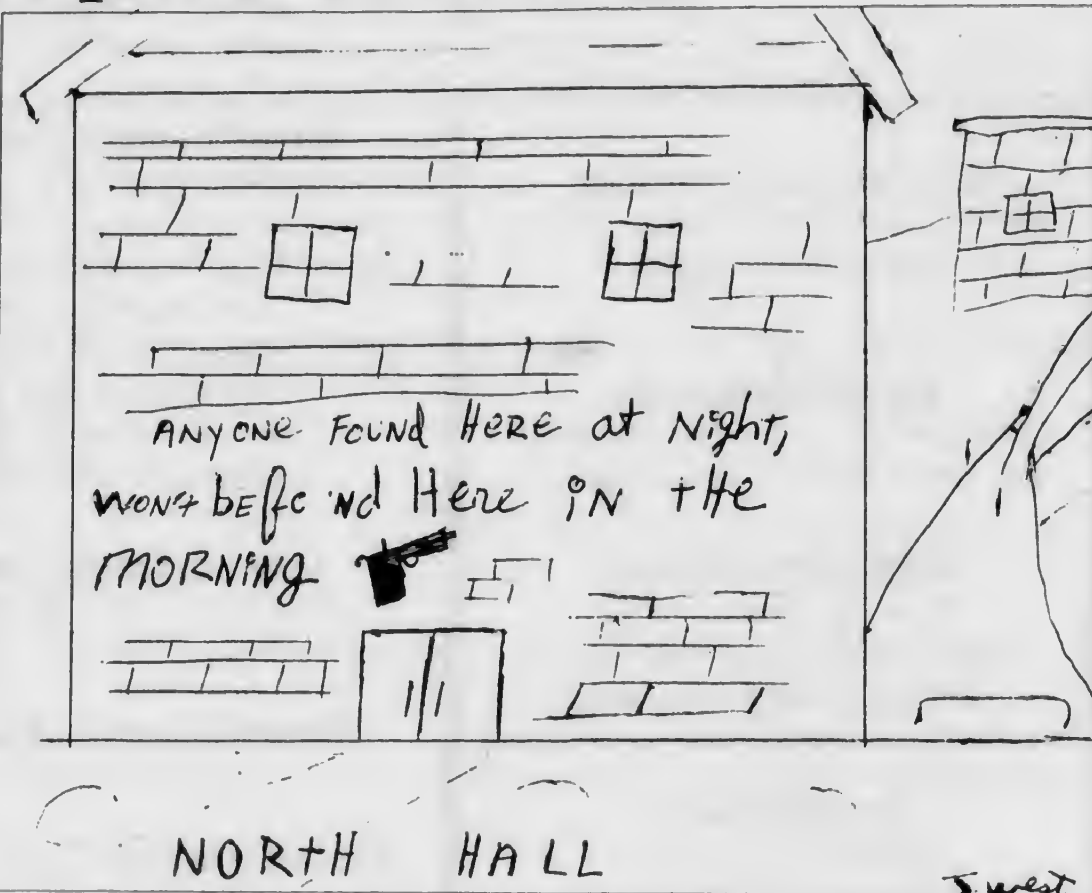 ANYONE FOUND HERE at Night,
WON't bE found HerE iN tHe
MORNiNg
NORtH HALL
J. West